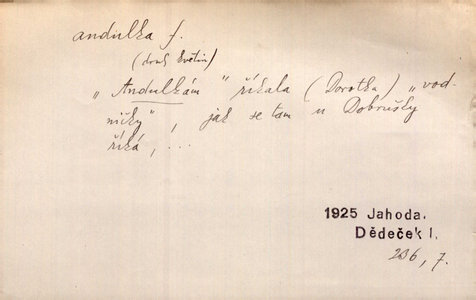 andulka f.
(druh květin)
„Andulkám" říkala (Dorotka) „vod-
ničky", jak se tam u Dobrušky
říká, ...
1925 Jahoda.
Dědeček I.
236, 7.